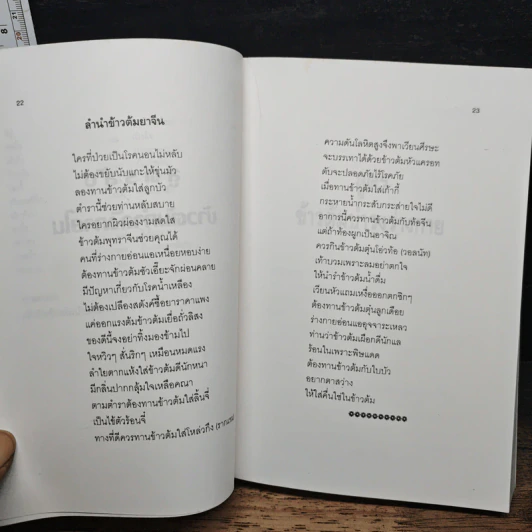 22
ลำนำข้าวต้มยาจีน
ใครที่ป่วยเป็นโรคนอนไม่หลับ
ไม่ต้องขยับนับแกะให้ขุ่นมัว
ลองทานข้าวต้มใส่ลูกบัว
ตำรานี้ช่วยท่านหลับสบาย
ใครอยากมีผิวผ่องงามสดใส
ข้าวต้มพุทราจีนช่วยคุณได้
คนที่ร่างกายอ่อนแอเหนื่อยหอบง่าย
ต้องทานข้าวต้มซัวเอี๊ยะจักผ่อนคลาย
มีปัญหาเกี่ยวกับโรคน้ำเหลือง
ไม่ต้องเปลืองสตังค์ซื้อยาราคาแพง
แค่ออกแรงต้มข้าวต้มเยื่อถั่วลิสง
ของดีนี้จงอย่าทิ้งมองข้ามไป
ใจหวิวๆ สั่นริกๆ เหมือนหมดแรง
ลำไยตากแห้งใส่ข้าวต้มดีนักหนา
มีกลิ่นปากกลุ้มใจเหลือคณา
ตามตำราต้องทานข้าวต้มใส่ลิ้นจี่
เป็นไข้ตัวร้อนจี๋
ทางที่ดีควรทานข้าวต้มใส่โหล่วกึง
23
ความดันโลหิตสูงจึงพาเวียนศีรษะ
จะบรรเทาได้ด้วยข้าวต้มหัวแครอท
ตับจะปลอดภัยไร้โรคภัย
เมื่อทานข้าวต้มใส่เก๋ากี้
กระหายน้ำกระสับกระส่ายใจไม่ดี
อาการนี้ควรทานข้าวต้มกับท้อจีน
แต่ถ้าท้องผูกเป็นอาจิณ
ควรกินข้าวต้มตุ๋นโอ่วท้อ (วอลนัท)
เท้าบวมเพราะลมอย่าตกใจ
ให้นำรำข้าวต้มน้ำดื่ม
เวียนหัวแถมเหงื่อออกตกซิกๆ
ต้องทานข้าวต้มตุ๋นลูกเดือย
ร่างกายอ่อนแออุจจาระเหลว
ท่านว่าข้าวต้มเผือกดีนักแล
ร้อนในเพราะพิษแดด
ต้องทานข้าวต้มกับใบบัว
อยากตาสว่าง
ให้ใส่คื่นไช่ในข้าวต้ม